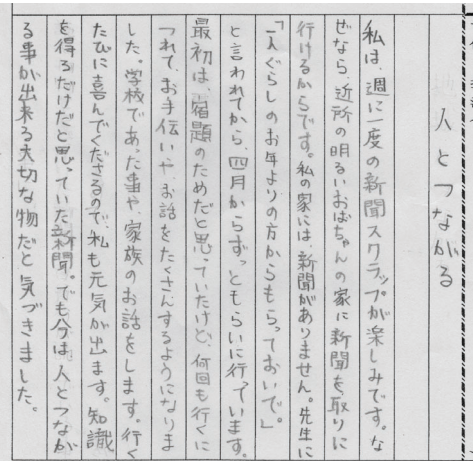 人とつながる
私は、週に一度の新聞スクラップが楽しみです。な
ぜなら、近所の明るいおばちゃんの家に新聞を取りに
行けるからです。私の家には、新聞がありません。先生に
「一人ぐらしのお年よりの方からもらっておいで。」
と言われてから、四月からずっともらいに行っています。
最初は、宿題のためだと思っていたけど、何回も行くに
つれて、お手伝いや、お話をたくさんするようになりま
した。学校であった事や、家族のお話をします。行く
たびに喜んでくださるので、私も元気が出ます。知識
を得るだけだと思っていた新聞。でも今は、人とつなが
る事が出来る大切な物だと気づきました。